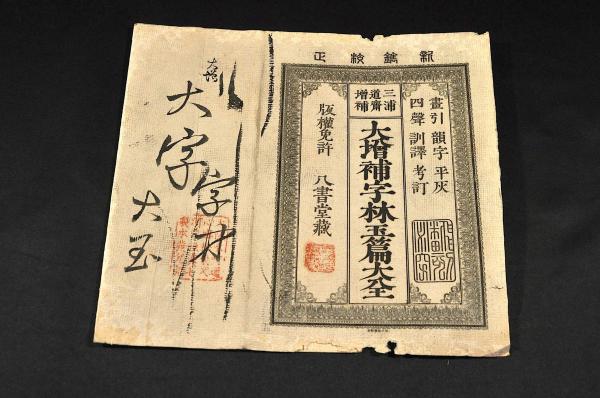 新鐫校正
畫引 韻字 平仄
四聲 訓譯 考訂
三浦
道齋
增補
大增補字林玉篇大全
版權免許 八書堂藏
大字
字林
大玉